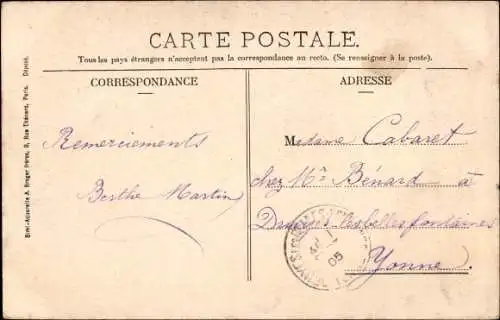 CARTE POSTALE.
Tous les pays étrangers n'acceptent pas la correspondance au recto. (Se renseigner à la poste).
CORRESPONDANCE
Remerciements
Berthe Martin
ADRESSE
Madame Cabaret
chez Mr Bénard à
Druyes-les-belles-fontaines
Yonne
05
Simi-Aquarelle A. Breger Frères, 9, Rue Thénard, Paris. Déposé.